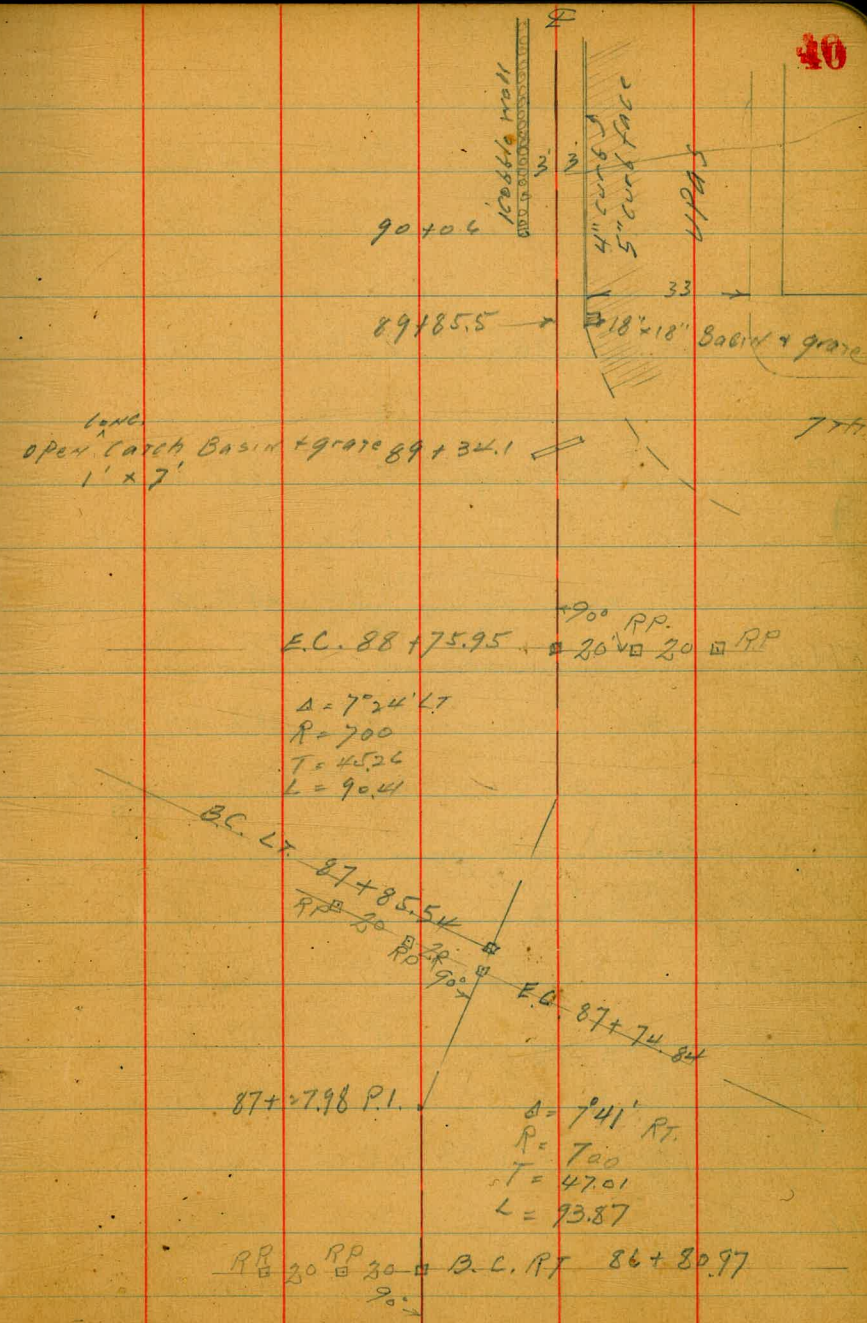 40
℄
Cobble wall
3 3
4" curb &
5" curb face
90+0.6
33
89+85.5
18"x18" Basin & grate
7th
long
open ^ Catch Basin & grate 89+34.1
1' x 7'
90° RP.
E.C. 88+75.95 20' 20 RP
Δ = 7°24' LT
R = 700
T = 45.26
L = 90.41
B.C. LT. 87+85.54
RP 20 RP 20
90°
E.C. 87+74.84
87+27.98 P.I.
Δ = 7°41' RT.
R = 700
T = 47.01
L = 93.87
RP 20 RP 20 B.C. RT 86+80.97
90°